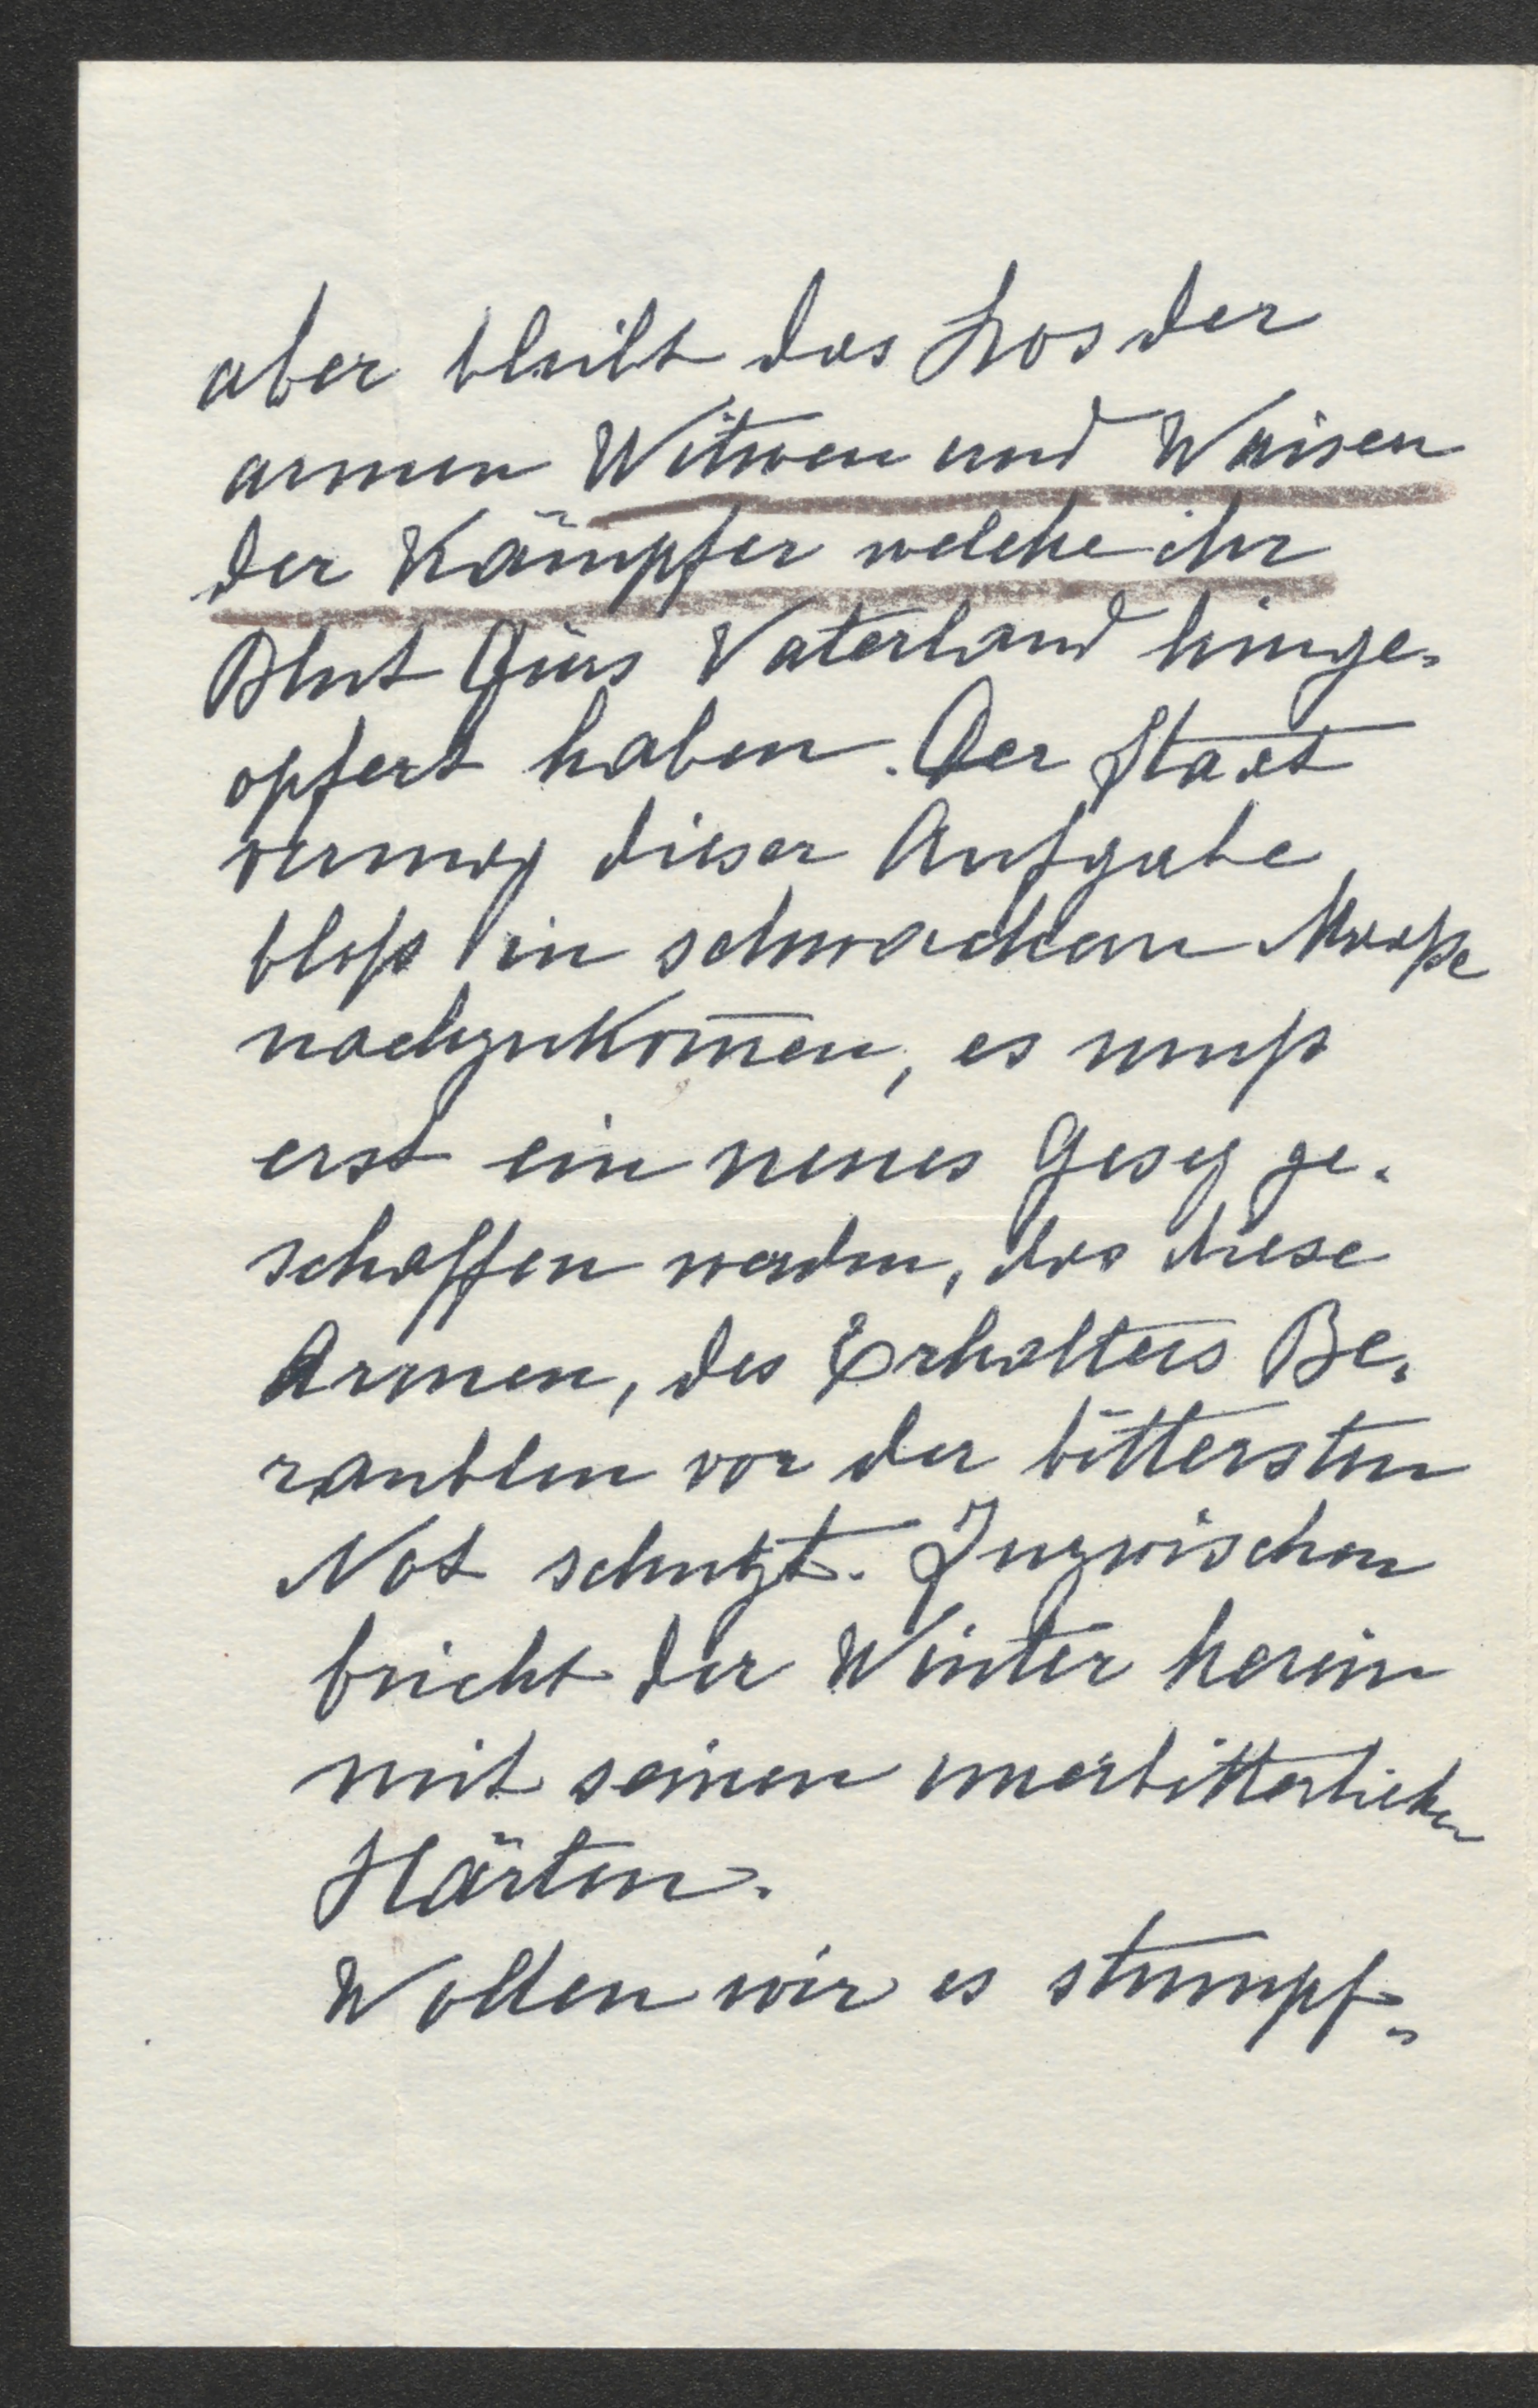 aber bleibt das Los der
armen Witwen und Waisen
der Kämpfer welche ihr
Blut fürs Vaterland hinge-
opfert haben. Der Staat
vermag dieser Aufgabe
bloß in schwachem Maaße
nachzukom̄en, es muß
erst ein neues Gesetz ge-
schaffen werden, das diese
Armen, des Erhalters Be-
raubten vor der bittersten
Not schützt. Inzwischen
bricht der Winter herein
mit seinen unerbitterlichen
Härten.
Wollen wir es stumpf-